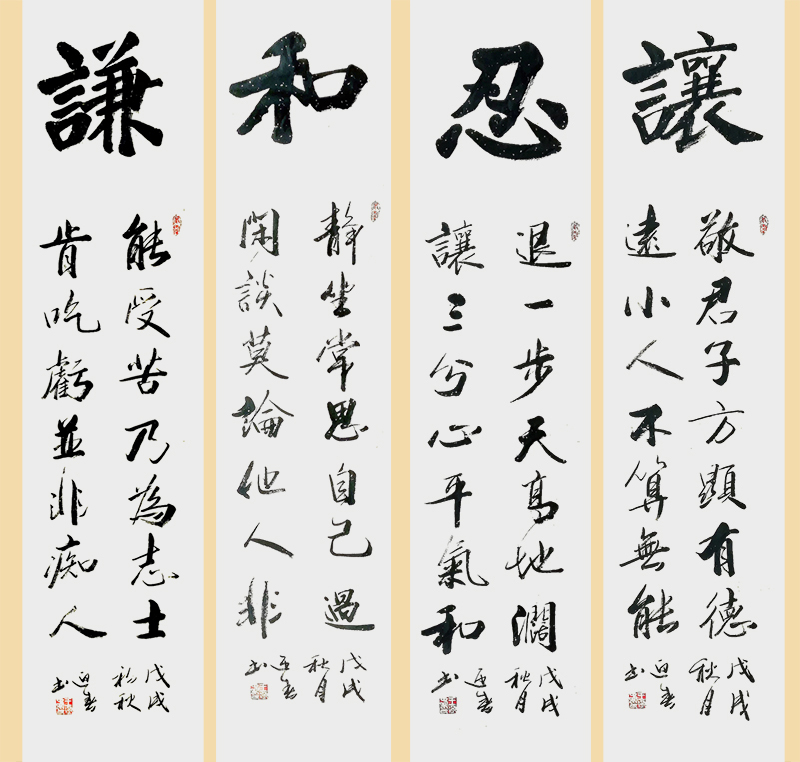 讓
敬君子方顯有德
遠小人不算無能
戊戌
秋月
迎春
书
忍
退一步天高地濶
讓三分心平氣和
戊戌
秋月
迎春
书
和
静坐常思自己過
閑談莫論他人非
戊戌
秋月
迎春
书
謙
能受苦乃為志士
肯吃虧並非痴人
戊戌
初秋
迎春
书